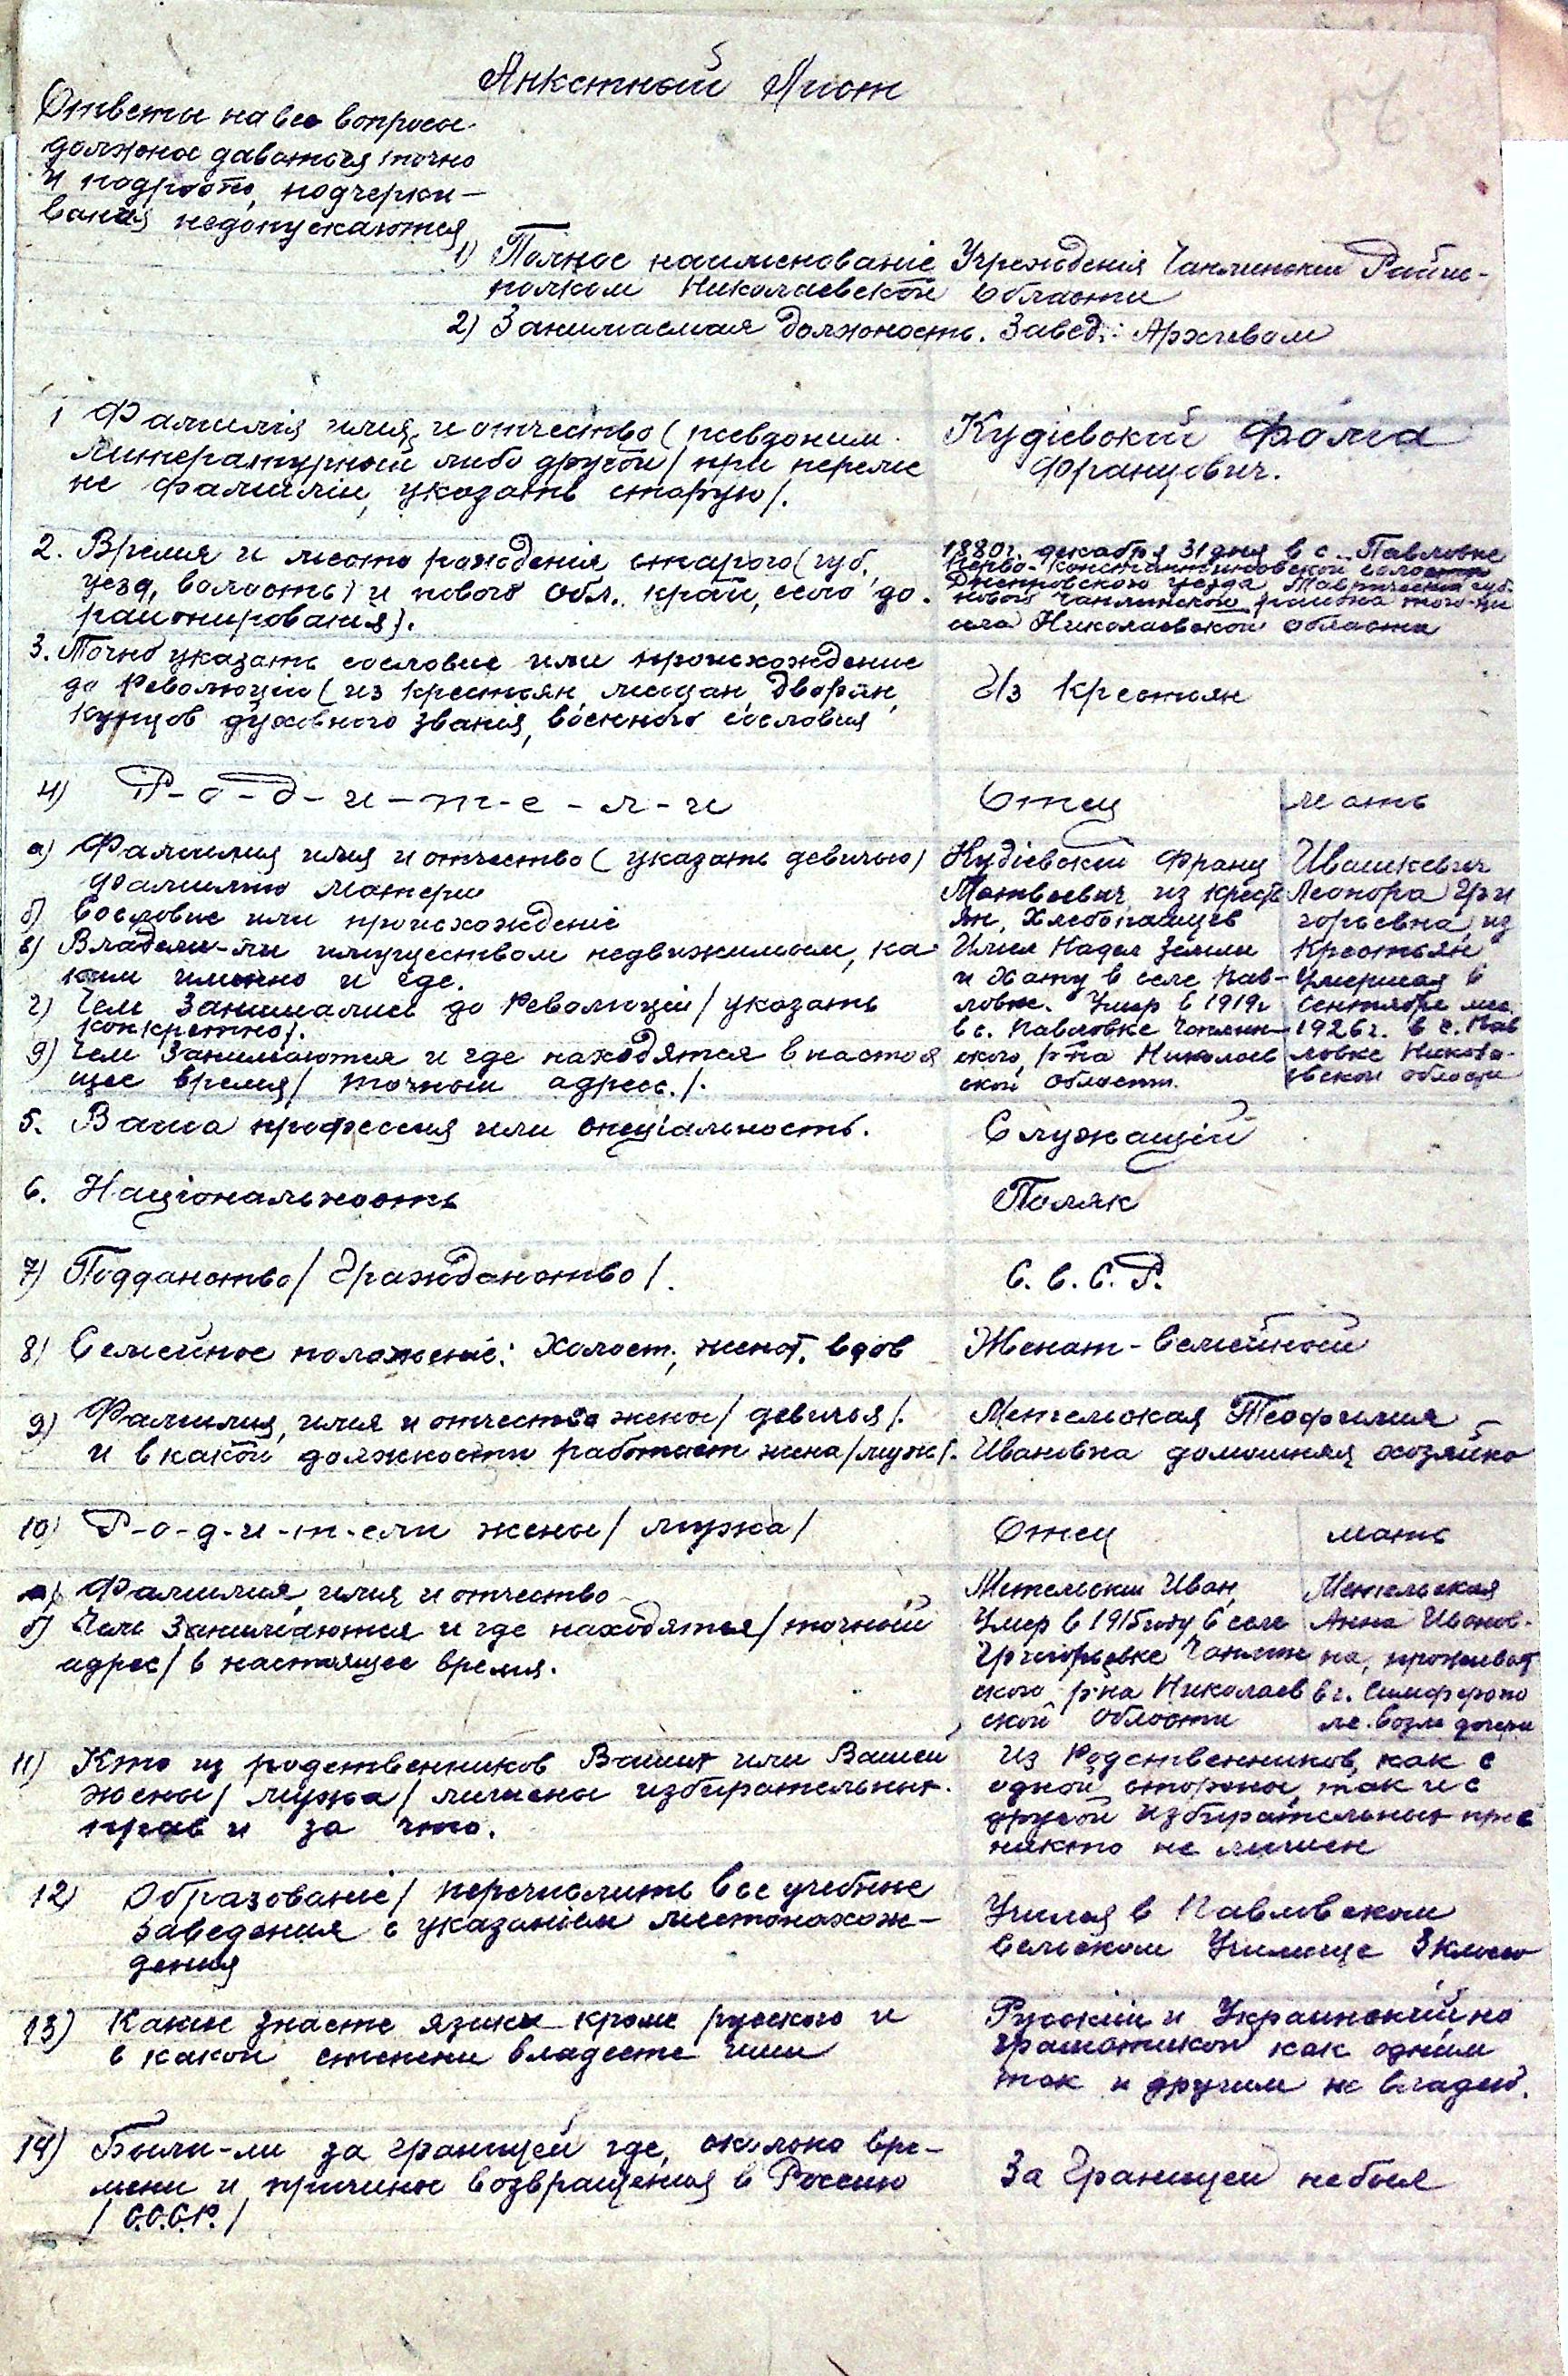 Анкетный Лист
56
Ответы на все вопросы
должны даваться точно
и подробно, подчерки-
вания недопускаются
1) Полное наименованіе Учрежденія Чаплински Райис-
полком Николаевской Области
2) Занимаемая должность. Завед.: Архивом
1 Фамилія имя, и отчество (псевдоним
литературный либо другой/ при переме
не фамиліи, указать старую/.
Кудіевский Фома
Францович.
2. Время и место рожденія старого (губ.,
уезд, волость) и нового обл. край, село до
районирования).
1880г. декабря 31 дня в с. Павловке
Перво-Константиновской волости
Днепровского уезда Таврической губ.
нового Чаплинского района того-же
села Николаевской области
3. Точно указать сословие или происхождение
до Революціи (из крестьян, мещан, дворян,
купцов духовного званія, военного сословия
Из крестьян
4) Р-о-д-и-т-е-л-и
Отец
мать
а) Фамилия имя и отчество (указать девичью)
фамилию матери
б) Сословие или происхожденіе
в) Владели-ли имуществом недвижимым, ка
ким именно и где.
г) Чем занимались до Революціи/ указать
конкретно/.
д) Чем занимаются и где находятся в настоя
щее время/ точный адресс./.
Кудіевский Франц
Матвеевич из кресть
ян, Хлебопашцев
Имел Надел Земли
и Хату в селе Пав-
ловке. Умер в 1919г
в с. Павловке Чаплин-
ского р-на Николаев
ской области.
Ивашкевич
Леонора Гри
горьевна, из
Крестьян
Умершая в
сентябре мес.
1926г. в с. Пав
ловке Никола-
евской области
5. Ваша профессия или спеціальность.
Служащій
6. Національность
Поляк
7) Подданство/ Гражданство/.
С.С.С.Р.
8) Семейное положеніе: Холост, женат, вдов
Женат-семейный
9) Фамилия, имя и отчество жены/ девичья/.
и в какой должности работает жена/мужа/.
Метельская Теофилия
Ивановна домашняя хозяйка
10) Р-о-д-и-т-ели жены/ мужа/
Отец
мать
а) Фамилия, имя и отчество
б) Чем Занимаются и где находятся/ точный
адрес/ в настоящее время.
Метельски Иван,
Умер в 1915 году в селе
Григорьевке Чаплин
ского р-на Николаев
ской области
Метельская
Анна Иванов-
на, проживает
в г. Симферопо
ле. возле дочери
11) Кто из родственников Ваших или Вашей
жены/ мужа/ лишены избирательных
прав и за что.
из Родственников, как с
одной стороны, так и с
другой избирательных прав
никто не лишен
12) Образованіе/ перечислить все учебные
заведения с указаніем местонахож-
дения
Учился в Павловском
сельском Училище 3 класа
13) Какие знаете языки кроме русского и
в какой степени владеете ими
Русскій и Украинский, но
граматикой как одним
так и другим не владею.
14) Были-ли за границей где, сколько вре-
мени и причины возвращения в Россию
/ С.С.С.Р. /
За Границей не был